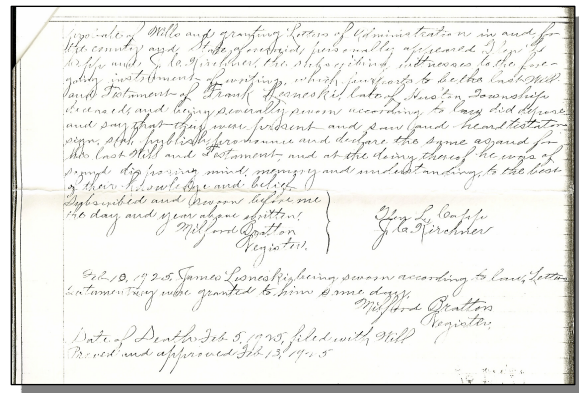 probate of Wills and granting Letters of Administration in and for
the county and State aforesaid, personally appeared
Capp and J. A. Kirchner, the subscribing witnesses to the fore-
going instrument of writing, which purports to be the last Will
and Testament of Frank Lesneskie, late of Huston Township
deceased, and being severally sworn according to law, did depose
and say that they were present and saw and heard testator
sign, seal, publish, pronounce and declare the same as and for
his last Will and Testament, and at the doing thereof he was of
sound disposing mind, memory and understanding, to the best
of their knowledge and belief.
Subscribed and sworn before me
the day and year above written.
Milford Bratton
Register.
Capp
J. A. Kirchner
Feb 13, 1925, James Lesneskie being sworn according to law, Letters
testamentary were granted to him same day.
Milford Bratton
Register.
Date of Death Feb 5, 1925, filed with Will
Proved and approved Feb 13, 1925